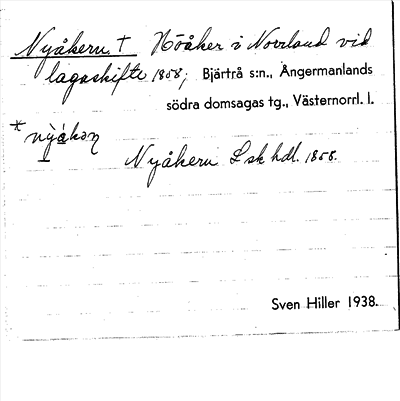 Nyåkern. † Höåker i Norrland vid
lagaskifte 1858; Bjärtrå s:n., Ångermanlands
södra domsagas tg., Västernorrl. l.
*
Nyåkern L sk hdl. 1858.
Sven Hiller 1938.